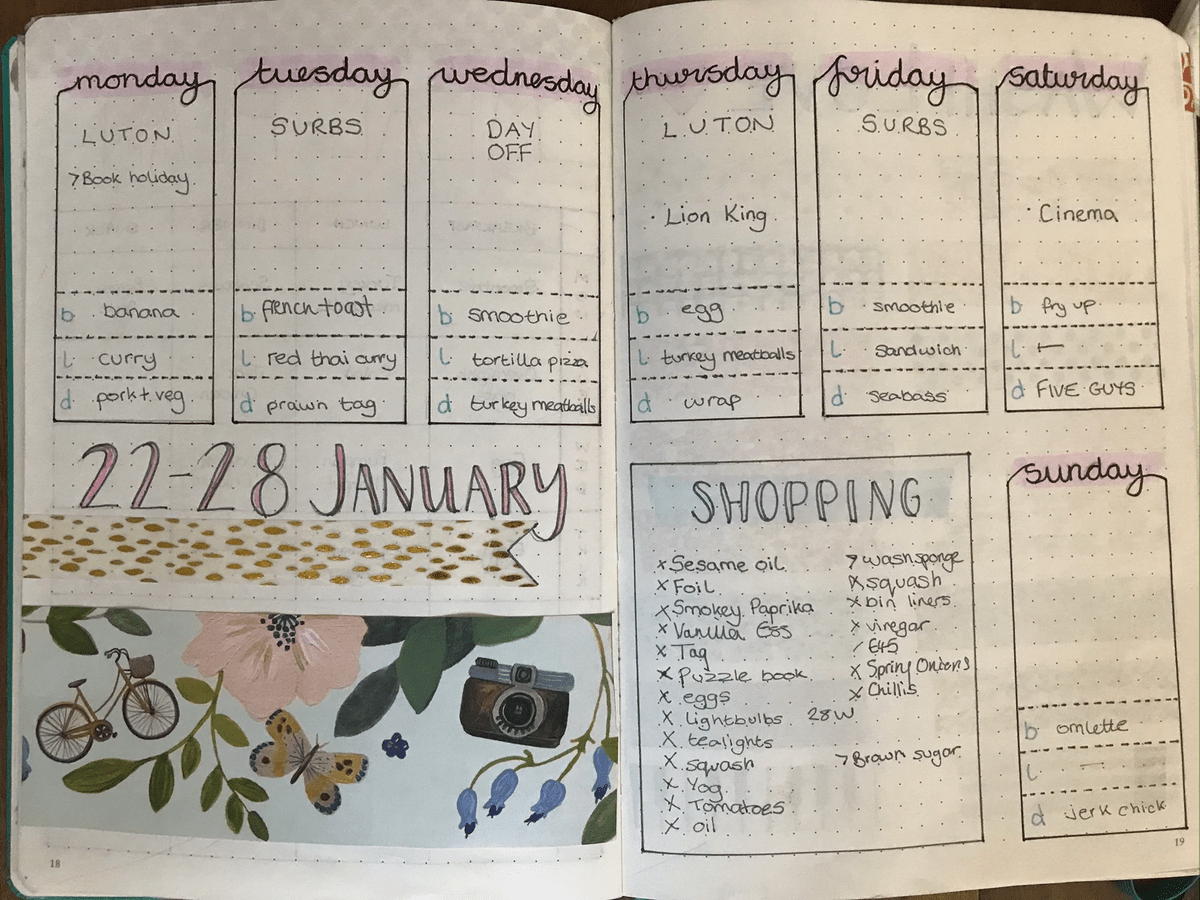 monday
LUTON
>Book holiday
b. banana
l. curry
d. pork + veg
tuesday
SURBS
b. french toast
l. red thai curry
d. prawn tag
wednesday
DAY
OFF
b. smoothie
l. tortilla pizza
d. turkey meatballs
22-28 JANUARY
18
thursday
LUTON
· Lion King
b. egg
l. turkey meatballs
d. wrap
friday
SURBS
b. smoothie
l. sandwich
d. seabass
saturday
· Cinema
b fry up
l. —
d FIVE GUYS
SHOPPING
x Sesame oil
x Foil
x Smokey Paprika
x Vanilla Ess
x Tag
x Puzzle book
x eggs
x lightbulbs 28W
x tealights
x squash
x Yog
x Tomatoes
x oil
> washsponge
x squash
x bin liners
x vinegar
/ E45
x Spring Onions
x Chillis
> Brown sugar
sunday
b omlette
l —
d jerk chick
19